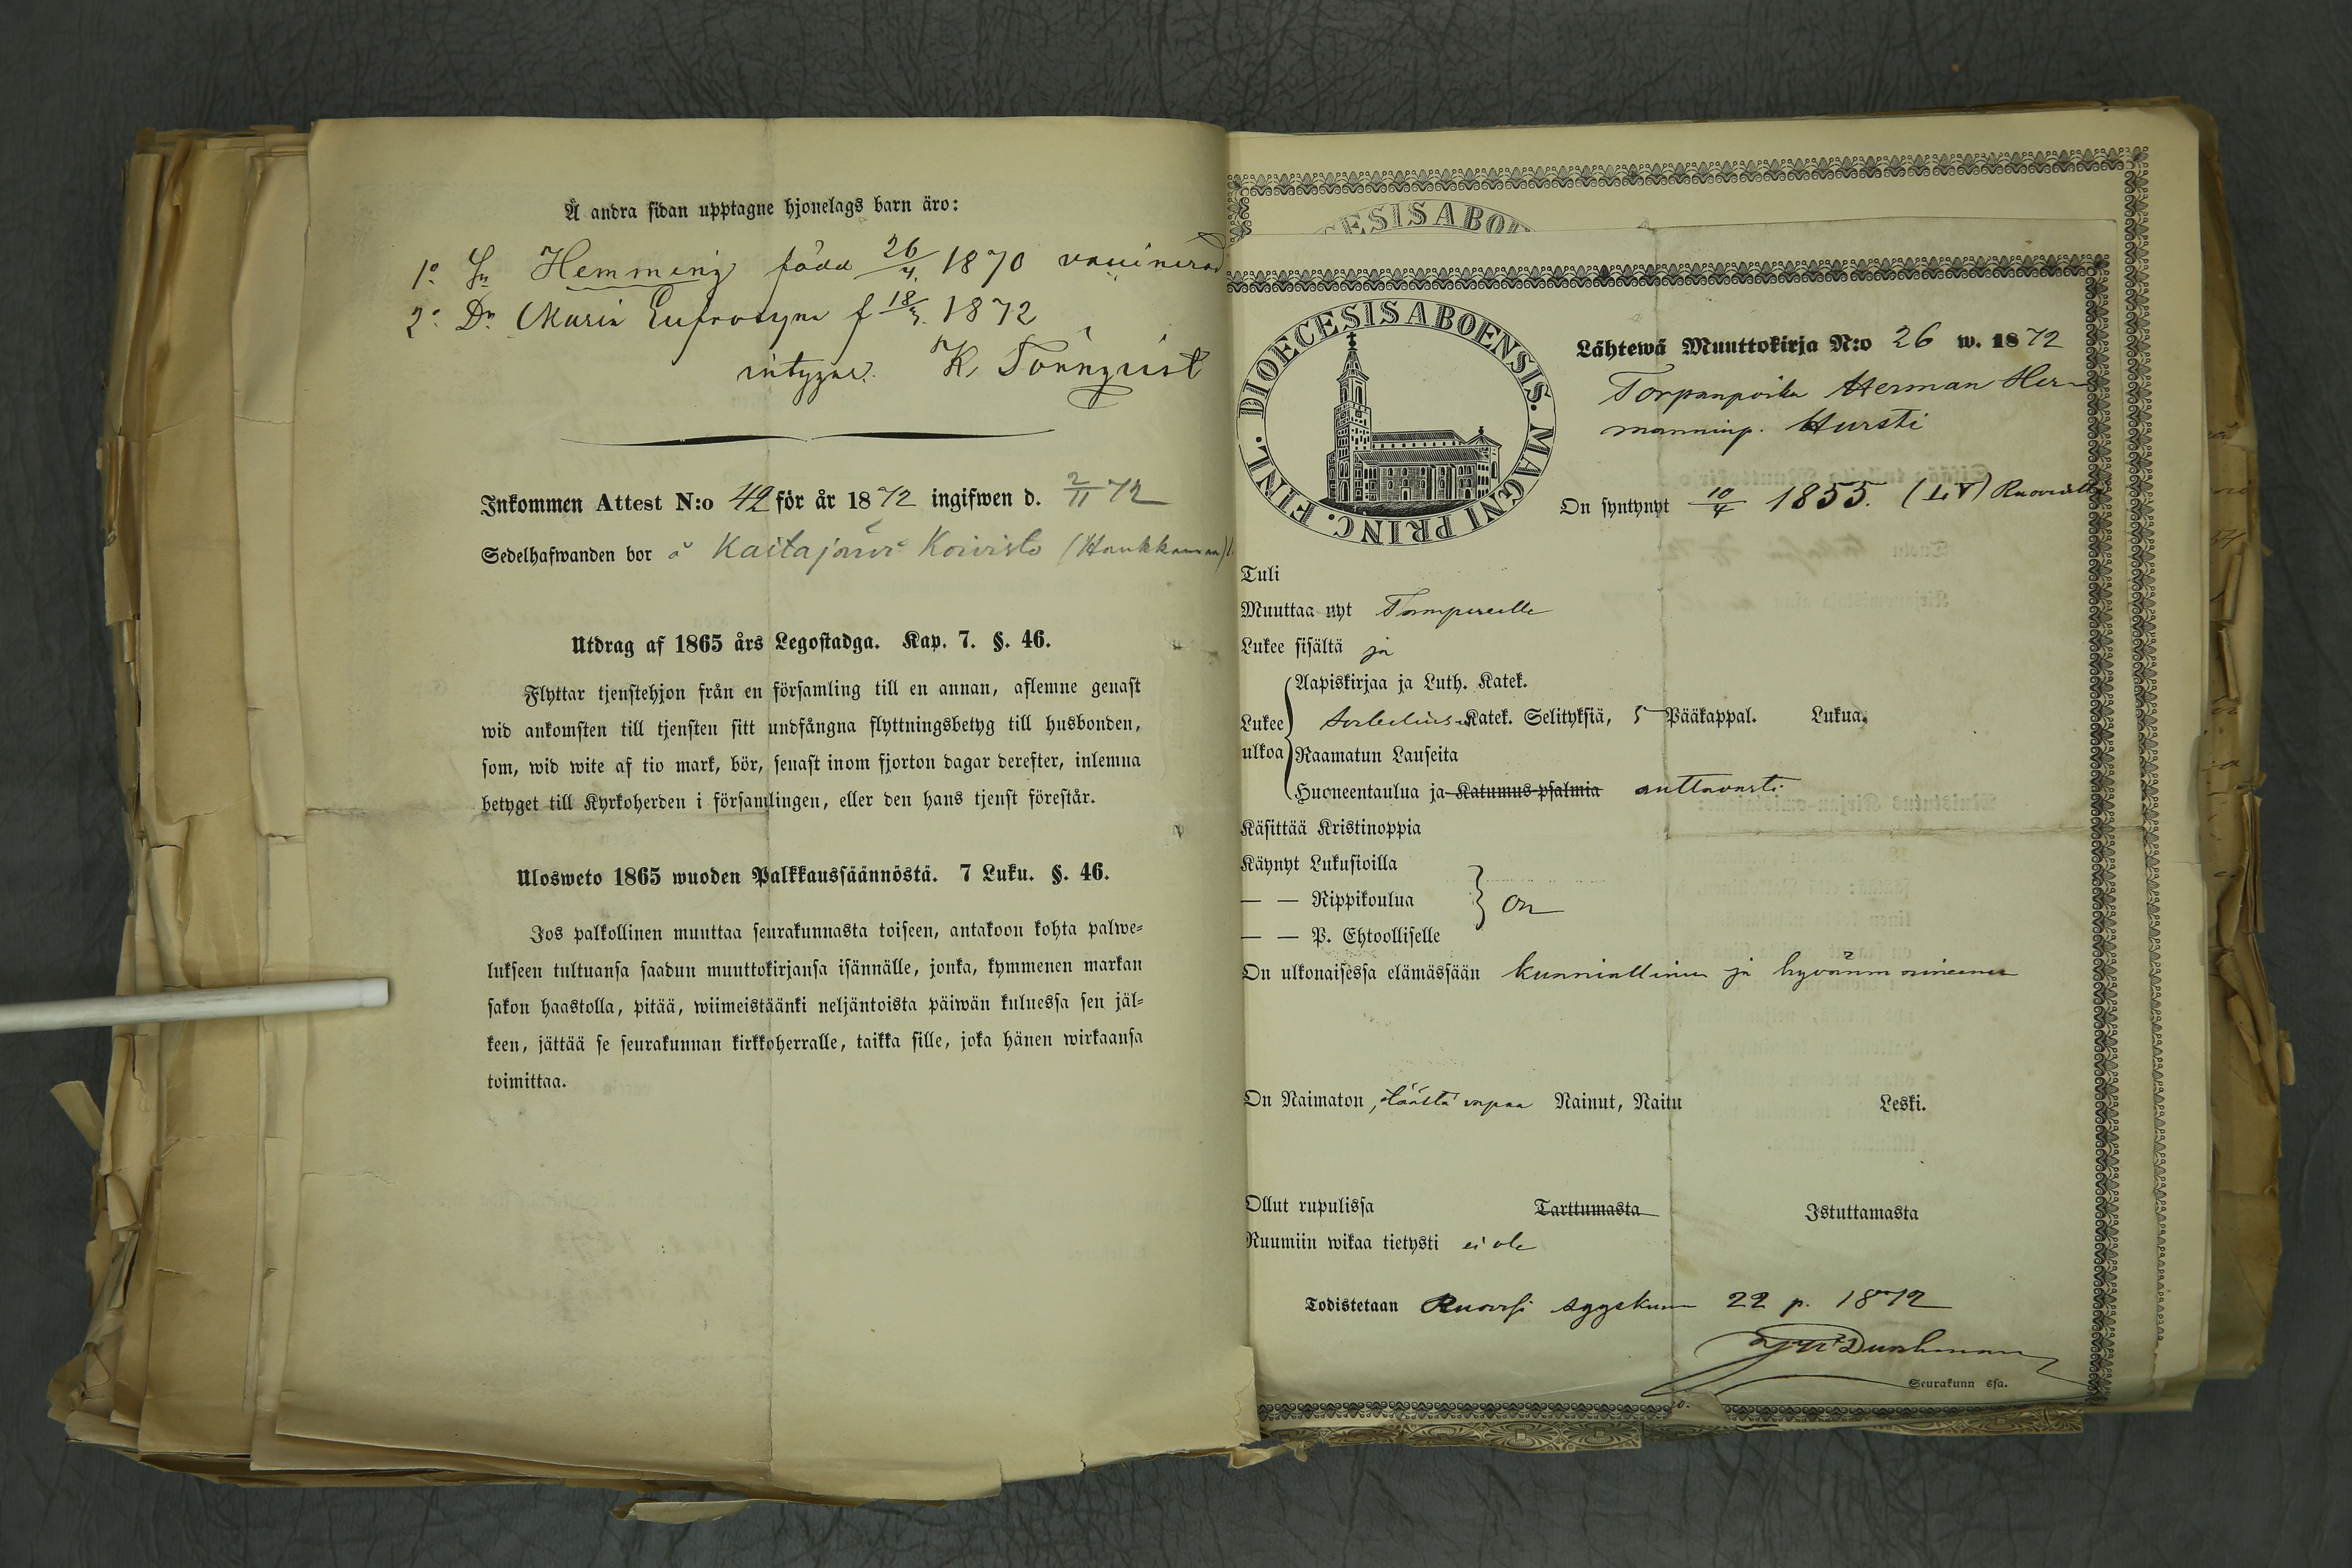 Å andra sidan upptagne hjonelags barn äro:
1o Sn Hemming född 26/4 1870 vaccinerad
2o Dr Maria Eufrosyne f 18/3 1872
intygar. K. Törnqvist
Inkommen Attest N:o 42 för år 1872 ingifwen d. 2/11 72
Sedelhafwanden bor å Kaitajärvi Koivisto
Utdrag af 1865 års Legostadga. Kap. 7. §. 46.
Flyttar tjenstehjon från en församling till en annan, aflemne genast
wid ankomsten till tjensten sitt undfångna flyttningsbetyg till husbonden,
som, wid wite af tio mark, bör, senast inom fjorton dagar derefter, inlemna
betyget till Kyrkoherden i församlingen, eller den hans tjenst förestår.
Ulosweto 1865 wuoden Palkkaussäännöstä. 7 Luku. §. 46.
Jos palkollinen muuttaa seurakunnasta toiseen, antakoon kohta palwe-
lukseen tultuansa saadun muuttokirjansa isännälle, jonka, kymmenen markan
sakon haastolla, pitää, wiimeistäänki neljäntoista päiwän kuluessa sen jäl-
keen, jättää se seurakunnan kirkkoherralle, taikka sille, joka hänen wirkaansa
toimittaa.
ESIS ABO
DIOECESIS ABOENSIS. MAGNI PRINC. FINL.
Lähtewä Muuttokirja N:o 26 w. 1872
Torpanpoika Herman Her-
manninp. Hursti
On syntynyt 10/4 1855. Ruovesillä
Tuli
Muuttaa nyt Tampereelle
Lukee sisältä ja
Aapiskirjaa ja Luth. Katek.
Lukee ulkoa Katek. Selityksiä, 5 Pääkappal. Lukua.
Raamatun Lauseita
Huoneentaulua ja Katumus-psalmia auttavasti
Käsittää Kristinoppia
Käynyt Lukusioilla
— — Rippikoulua } on
— — P. Ehtoolliselle
On ulkonaisessa elämässään kunniallinen ja hyvänmaineinen
On Naimaton, vapaa Nainut, Naitu Leski.
Ollut rupulissa Tarttumasta Istuttamasta
Ruumiin wikaa tietysti ei ole
Todistetaan Ruovesi syyskuun 22 p. 1872
Seurakunn ssa.